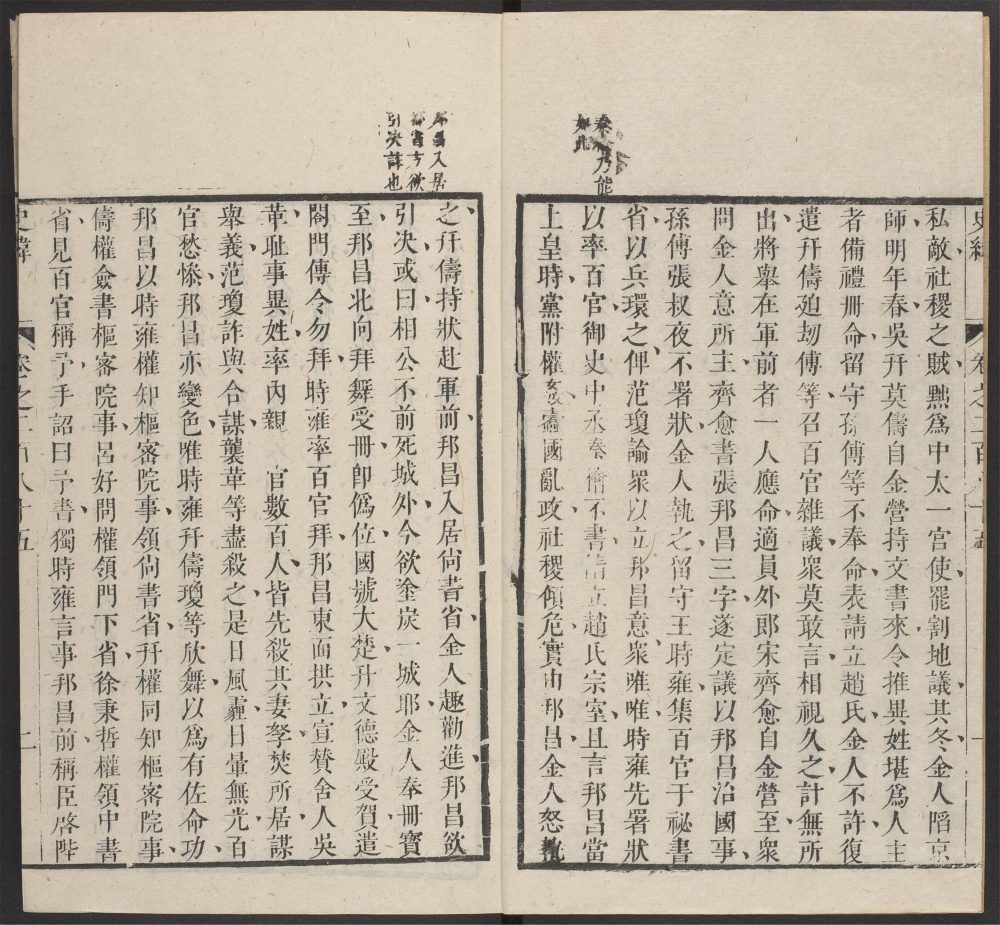 秦 乃能
如此
私敵社稷之賊黜爲中太一宮使罷割地議其冬金人陷京
師明年春吳幵莫儔自金營持文書來令推異姓堪爲人主
者備禮冊命留守孫傅等不奉命表請立趙氏金人不許復
遣幵儔廹劫傅等召百官雜議衆莫敢言相視久之計無所
出將舉在軍前者一人應命適員外郎宋齊愈自金營至衆
問金人意所主齊愈書張邦昌三字遂定議以邦昌治國事
孫傅張叔夜不署狀金人執之留守王時雍集百官于祕書
省以兵環之俾范瓊諭衆以立邦昌意衆唯唯時雍先署狀
以率百官御史中丞秦檜不書請立趙氏宗室且言邦昌當
上皇時黨附權姦蠧國亂政社稷傾危實由邦昌金人怒執
邦昌入居
都省方欲
引決詐也
之幵儔持狀赴軍前邦昌入居尙書省金人趣勸進邦昌欲
引決或曰相公不前死城外今欲塗炭一城耶金人奉冊寶
至邦昌北向拜舞受冊卽僞位國號大楚升文德殿受賀遣
閤門傳令勿拜時雍率百官拜邦昌東面拱立宣贊舍人吳
革耻事異姓率內親 官數百人皆先殺其妻孥焚所居謀
舉義范瓊詐與合謀襲革等盡殺之是日風霾日暈無光百
官愁慘邦昌亦變色唯時雍幵儔瓊等欣舞以爲有佐命功
邦昌以時雍權知樞密院事領尙書省幵權同知樞密院事
儔權僉書樞密院事呂好問權領門下省徐秉哲權領中書
省見百官稱予手詔曰予書獨時雍言事邦昌前稱臣啓陛
史緯 卷之 百八十五 二